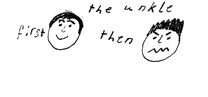 the unkle
first then